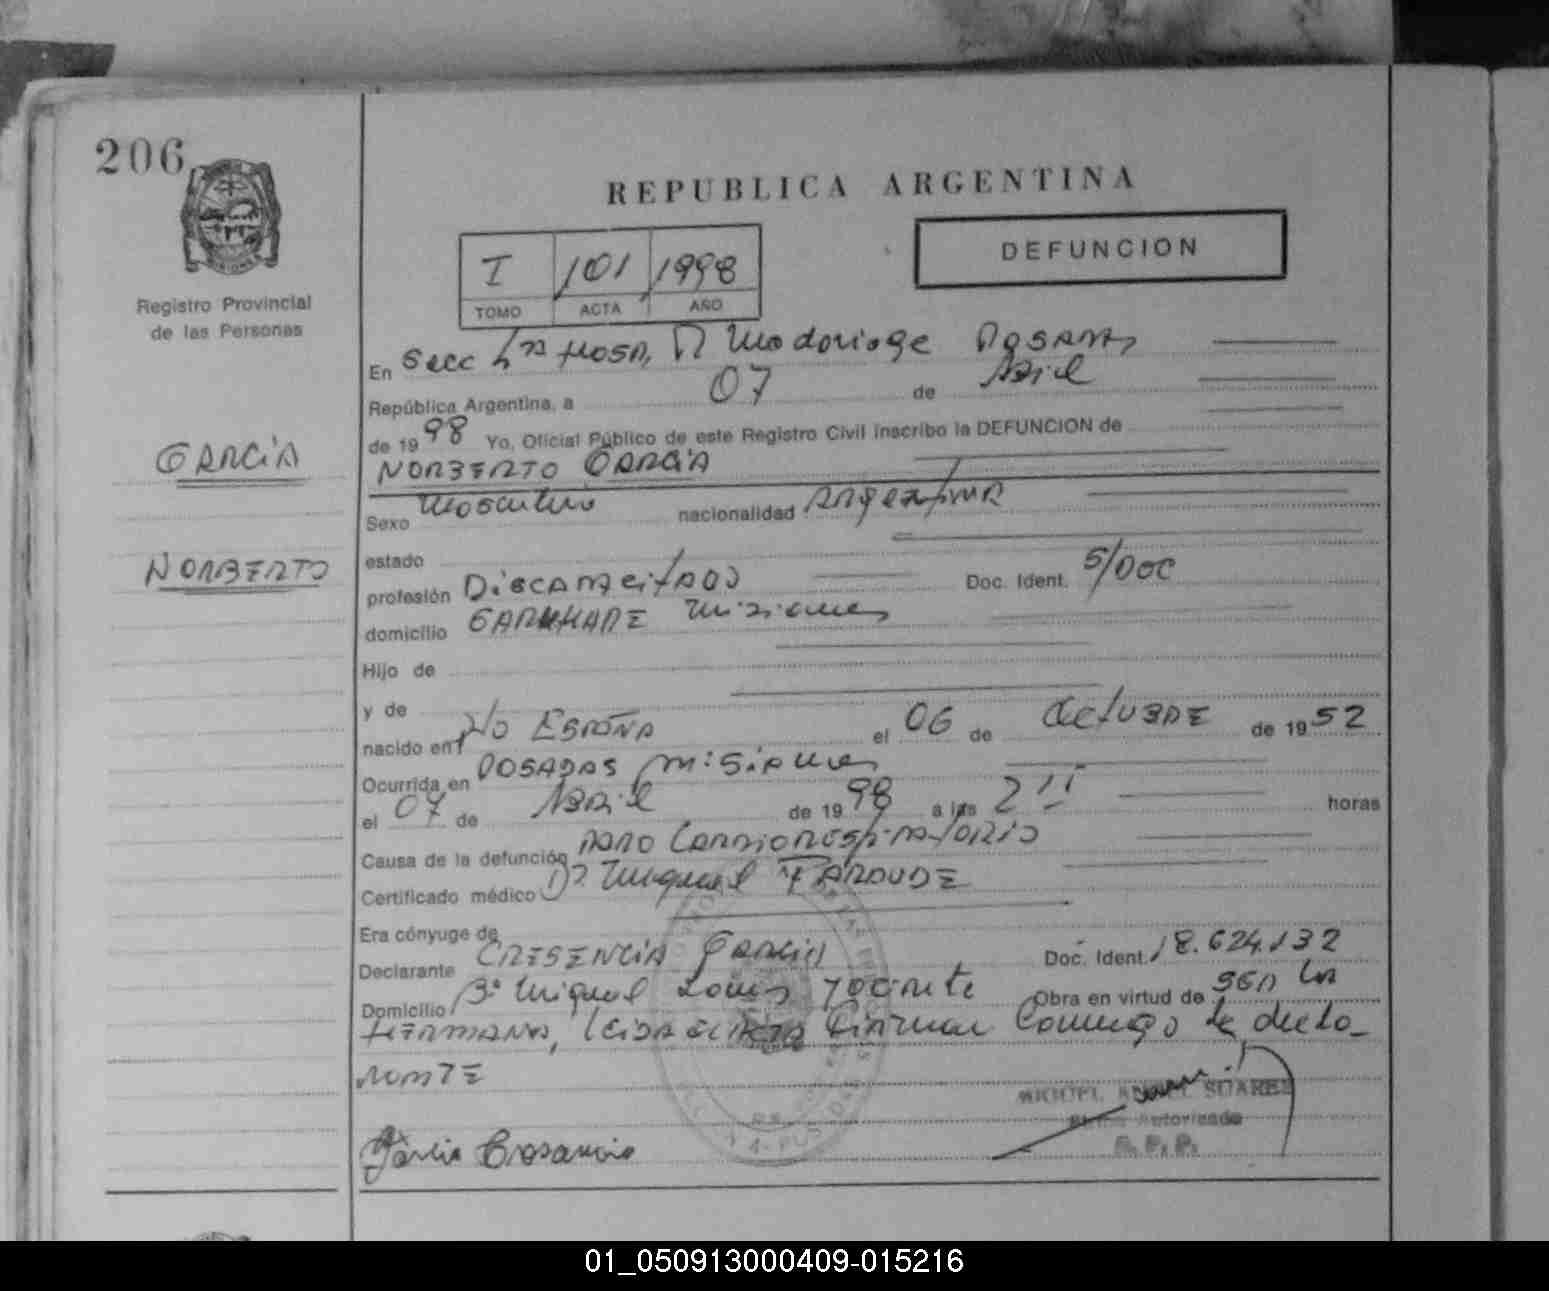 206
REPUBLICA ARGENTINA
DEFUNCION
I /101/ 1998
TOMO ACTA AÑO
Registro Provincial
de las Personas
GARCIA
NORBERTO
En Secc Hosp. R Madariaga Posadas
República Argentina, a 07 de Abril
de 1998 Yo, Oficial Público de este Registro Civil inscribo la DEFUNCION de
NORBERTO GARCIA
Sexo Masculino nacionalidad Argentina
estado
profesión Discapacitado Doc. Ident. S/Doc
domicilio GARUHAPE Misiones
Hijo de
y de
nacido en Pto ESPAÑA el 06 de Octubre de 1952
Ocurrida en POSADAS Misiones
el 07 de Abril de 1998 a las horas
Causa de la defunción Paro Cardiorespiratorio
Certificado médico Dr Miguel
Era cónyuge de
Declarante CRESENCIA Garcia Doc. Ident. 18.624.132
Domicilio Bº Miguel Obra en virtud de ser la
HERMANA, leida el Acta Firman Conmigo la decla-
rante
MIGUEL ANGEL SUAREZ
Autorizado
R. P. P.
01_050913000409-015216